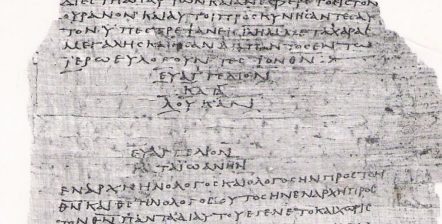 ΔΙΕϹΤΗ ΑΠ ΑΥΤΩΝ ΚΑΙ ΑΝΕΦΕΡΕΤΟ ΕΙϹ ΤΟΝ
ΟΥΡΑΝΟΝ ΚΑΙ ΑΥΤΟΙ ΠΡΟϹΚΥΝΗϹΑΝΤΕϹ ΑΥ
ΤΟΝ ΥΠΕϹΤΡΕΨΑΝ ΜΕΤΑ ΧΑΡΑϹ
ΜΕΓΑΛΗϹ ΚΑΙ ΗϹΑΝ ΔΙΑ ΠΑΝΤΟϹ ΕΝ ΤΩ
ΙΕΡΩ ΕΥΛΟΓΟΥΝΤΕϹ ΤΟΝ ΘΝ
ΕΥΑΓΓΕΛΙΟΝ
ΚΑΤΑ
ΛΟΥΚΑΝ
ΕΥΑΓΓΕΛΙΟΝ
ΚΑΤΑ ΙΩΑΝΗΝ
ΕΝ ΑΡΧΗ ΗΝ Ο ΛΟΓΟϹ ΚΑΙ Ο ΛΟΓΟϹ ΗΝ ΠΡΟϹ ΤΟΝ
ΘΝ ΚΑΙ ΘϹ ΗΝ Ο ΛΟΓΟϹ ΟΥΤΟϹ ΗΝ ΕΝ ΑΡΧΗ ΠΡΟϹ
ΤΟΝ ΘΝ ΠΑΝΤΑ ΔΙ ΑΥΤΟΥ ΕΓΕΝΕΤΟ ΚΑΙ ΧΩΡΙϹ